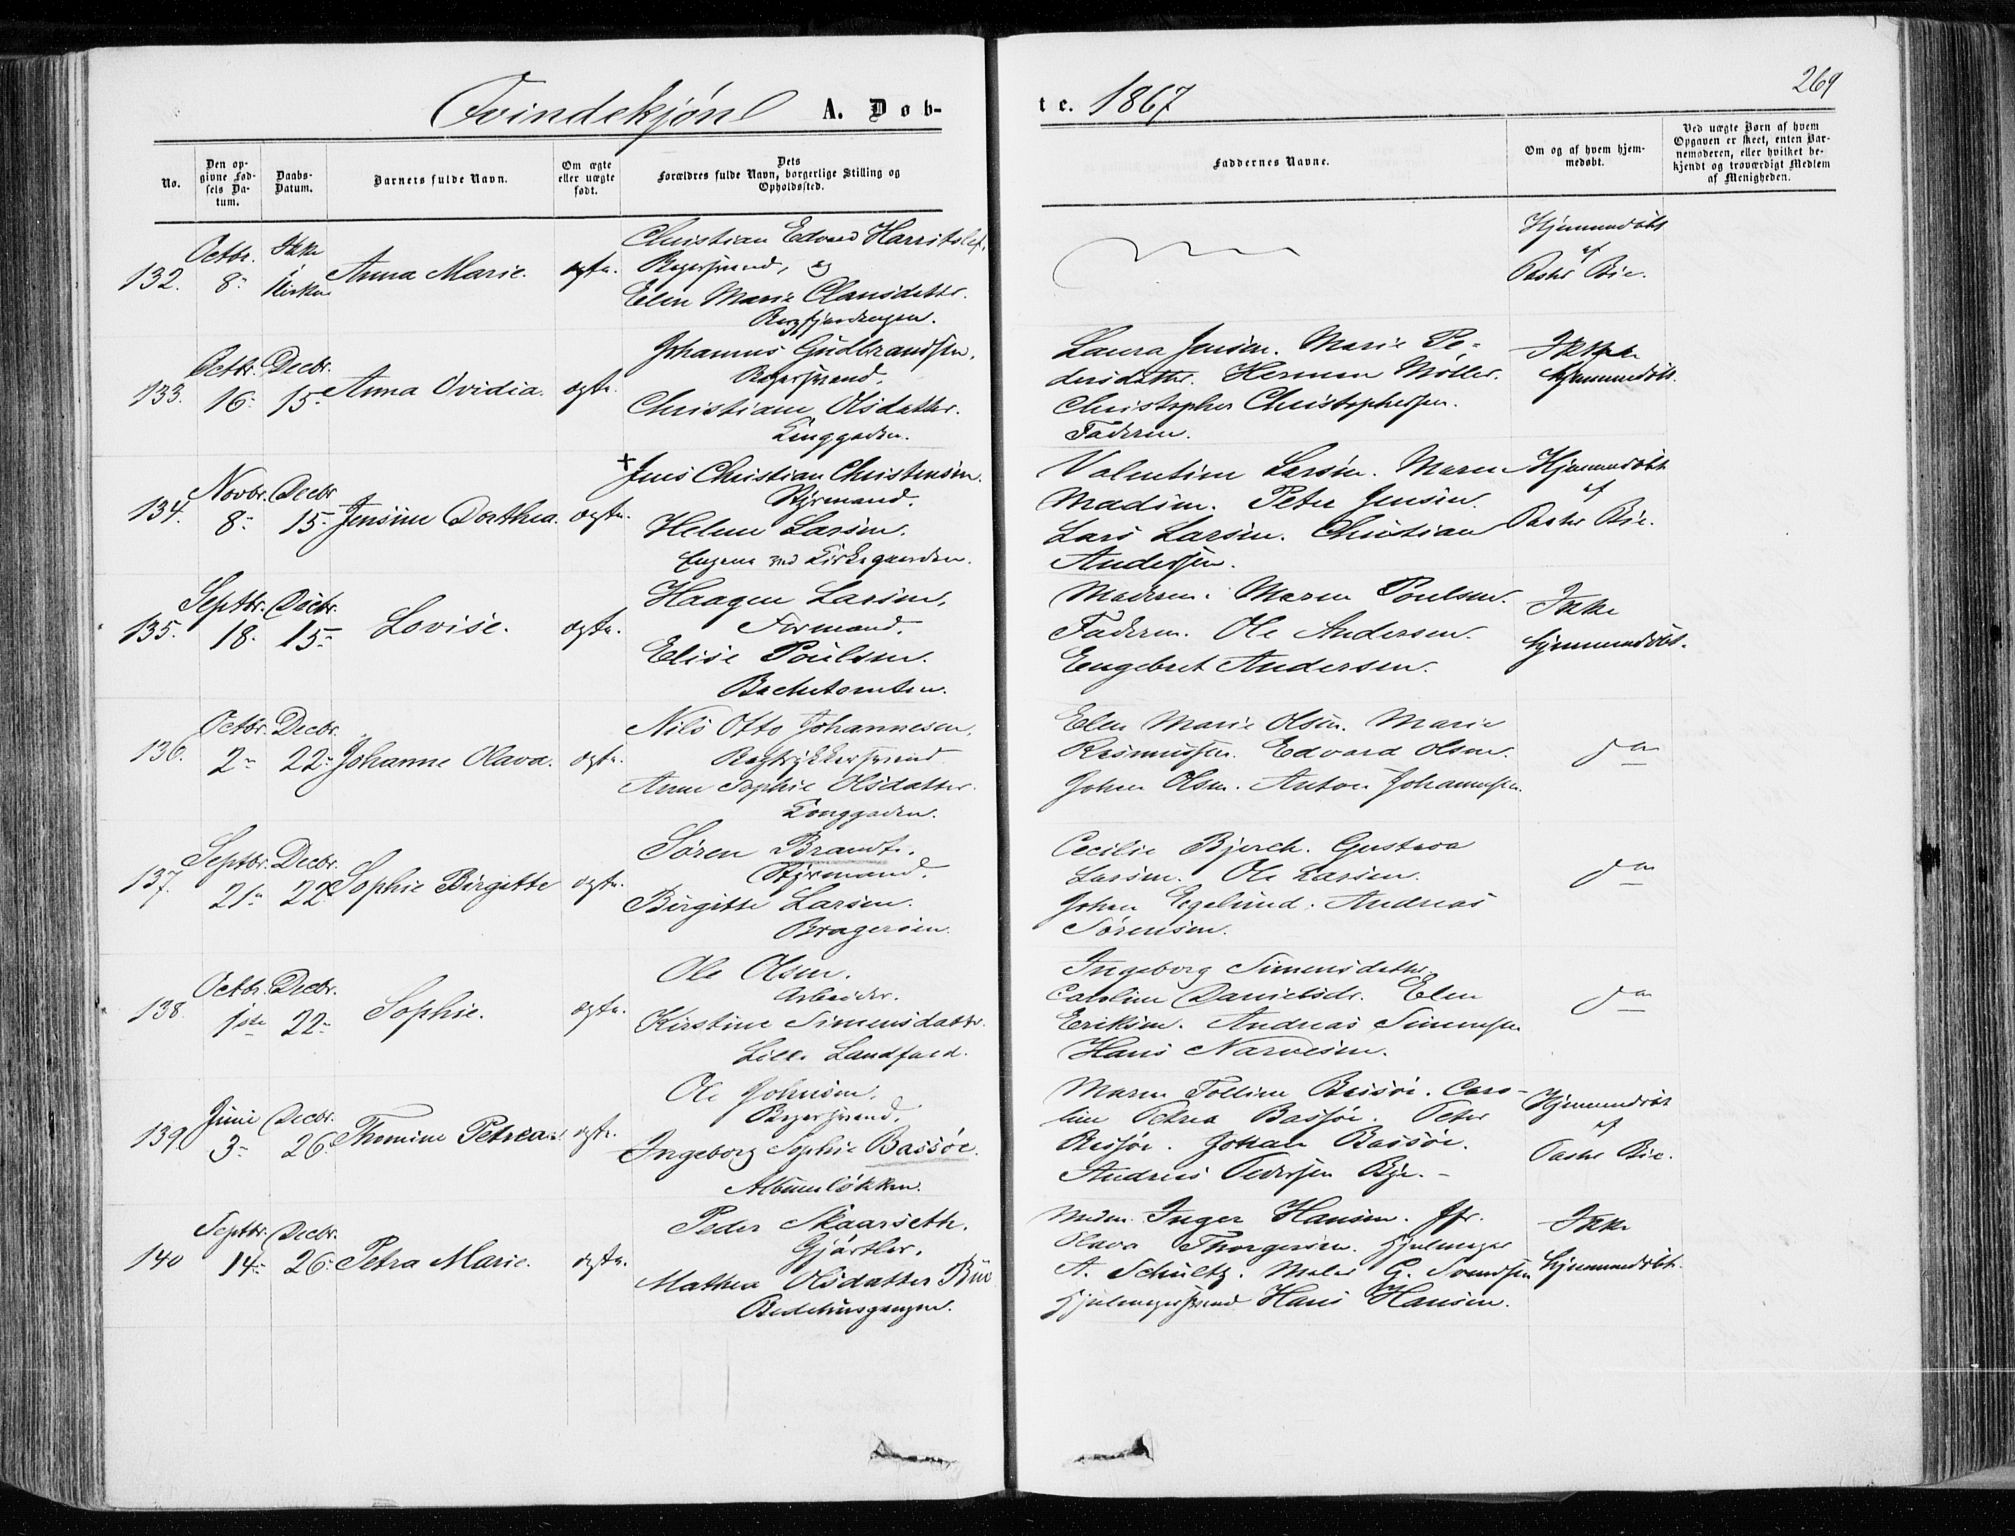 269
Qvindekjøn A. Døb-
te. 1867
No.
Den opgivne Fødsels Datum.
Daabs-Datum.
Barnets fulde Navn.
Om ægte eller uægte født.
Dets Forældres fulde Navn, borgerlige Stilling og Opholdssted.
Faddernes Navne.
Om og af hvem hjemmedøbt.
Ved uægte Børn af hvem Opgaven er skeet, enten Barnemoderen, eller hvilket bekjendt og troværdigt Medlem af Menigheden.
132. Octbr. 8. Ikke i Kirken Anna Marie. ægte.
Christian Edvard Harritslef,
Bagersvend, og
Elen Marie Clausdatter.
Bergfjerdingen.
Hjemmedøbt
af
Pastor Bie.
133. Octbr. 16. Decbr. 15. Anna Ovidia. ægte.
Johannes Gudbrandsen,
Bagersvend.
Christiane Olsdatter.
Konggaden.
Laura Jensen. Marie Pe-
dersdatter. Herman Møller.
Christopher Christophersen.
Faderen.
Ikke
hjemmedøbt.
134. Novbr. 8. Decbr. 15. Jensine Dorthea. ægte.
+ Jens Christian Christensen.
Styrmand.
Helene Larsen.
Engene ved Kirkegaarden.
Valentine Larsen. Maren
Madsen. Peter Jensen.
Lars Larsen. Christian
Andersen.
Hjemmedøbt
af
Pastor Bie.
135. Septbr. 18. Decbr. 15. Lovise. ægte.
Haagen Larsen,
Formand.
Elise Poulsen.
Bachetomten.
Moderen. Maren Poulsen.
Faderen. Ole Andersen.
Engebret Andersen.
Ikke
hjemmedøbt.
136. Octbr. 2. Decbr. 22. Johanne Olava. ægte.
Nils Otto Johannesen,
Anne Sophie Olsdatter.
Konggaden.
Elen Marie Olsen. Marie
Rasmussen. Edvard Olsen.
Johan Olsen. Anton Johannesen
do
137. Septbr. 21. Decbr. 22. Sophie Birgitte ægte.
Søren Brandt.
Styrmand.
Birgitte Larsen.
Bragerøen.
Cecilie Bjerch. Gustava
Larsen. Ole Larsen.
Johan Engelund. Andreas
Sørensen.
do
138. Octbr. 1ste Decbr. 22. Sophie. ægte.
Ole Olsen.
Arbeider.
Kirstine Simensdatter.
Lille Landfald.
Ingeborg Simensdatter.
Caroline Danielsdr. Elen
Eriksen. Andreas Simensen
Hans Narvesen.
do
139. Juni 3. Decbr. 26. Thomine Petrea. ægte.
Ole Johnsen.
Bagersvend.
Ingeborg Sophie Bassøe.
Albumsløkken.
Maren Bassøe. Caro-
line Petrea Bassøe. Peter
Bassøe. Johan Bassøe.
Andreas Pedersen Bye. -
Hjemmedøbt
af
Pastor Bie.
140 Septbr. 14. Decbr. 26. Petra Marie. ægte.
Peder Skaarseth.
Gjørtler.
Mathea Olsdatter Bue
Bedehusgangen.
Madm. Inger Hansen. Jfr.
Olava Thorgersen. Hjulmager
A. Schultz. Maler G. Svendsen
Hjulmagersvend Hans Hansen.
Ikke
hjemmedøbt.